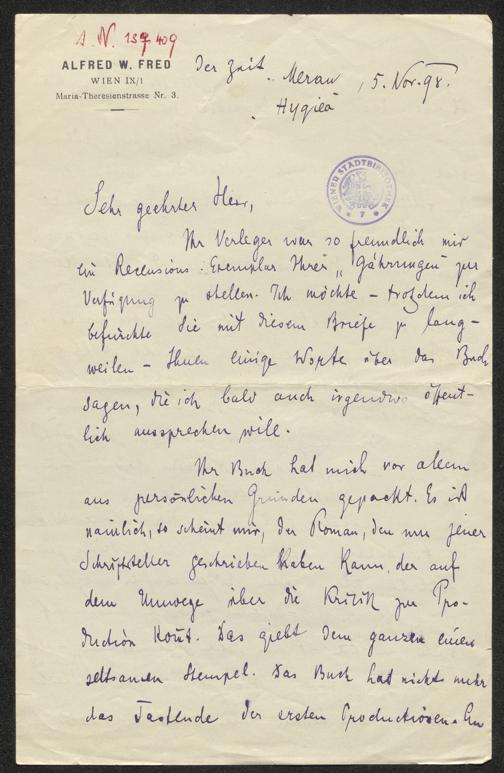 I. N. 137409
ALFRED W. FRED
WIEN IX/1
Maria-Theresienstrasse Nr. 3.
der Zeit Meran, 5. Nov. 98.
Hygiea
WIENER STADTBIBLIOTHEK
7
Sehr geehrter Herr,
Ihr Verleger war so freundlich mir
ein Recensions-Exemplar Ihrer „Gährungen" zur
Verfügung zu stellen. Ich möchte – trotzdem ich
befürchte Sie mit diesem Briefe zu lang-
weilen – Ihnen einige Worte über das Buch
sagen, die ich bald auch irgendwo öffent-
lich aussprechen will.
Ihr Buch hat mich vor allem
aus persönlichen Gründen gepackt. Es ist
nämlich, so scheint mir, der Roman, den nur jener
Schriftsteller geschrieben haben kann, der auf
dem Umwege über die Kritik zur Pro-
duction komt. Das giebt dem ganzen einen
seltsamen Stempel. Das Buch hat nichts mehr
das Tastende der ersten Productionen.